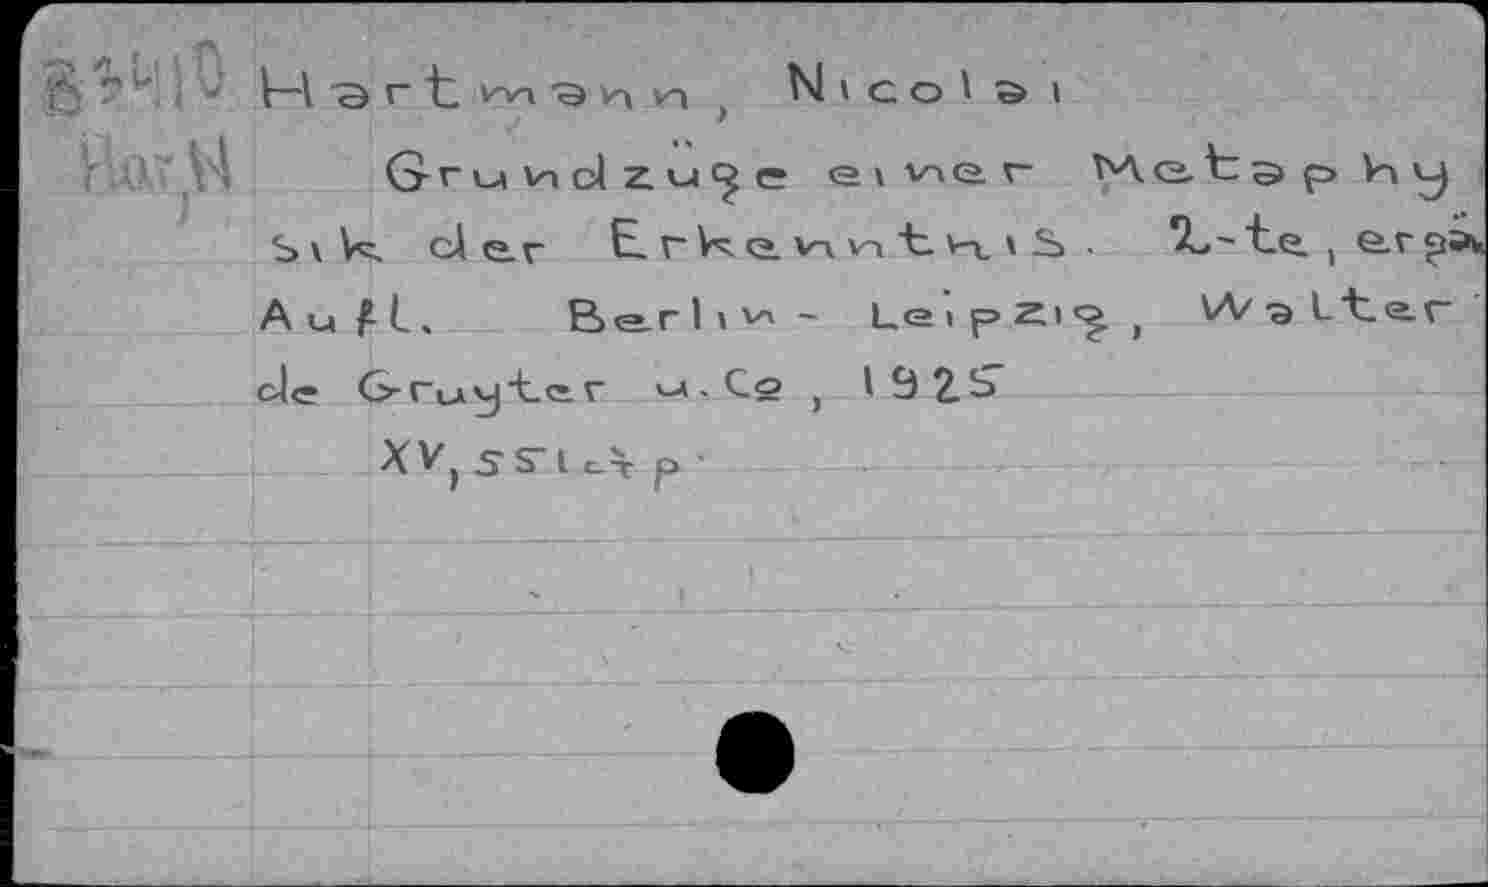 Hartmann, Nicolai
Har,N Grundzüge einer Metaphy
sik der Erkenntnis. 2-te, ergän
Aufl. Berlin - Leipzig, Walter
de Gruyter u. Co, 1925
XV, 551 p.